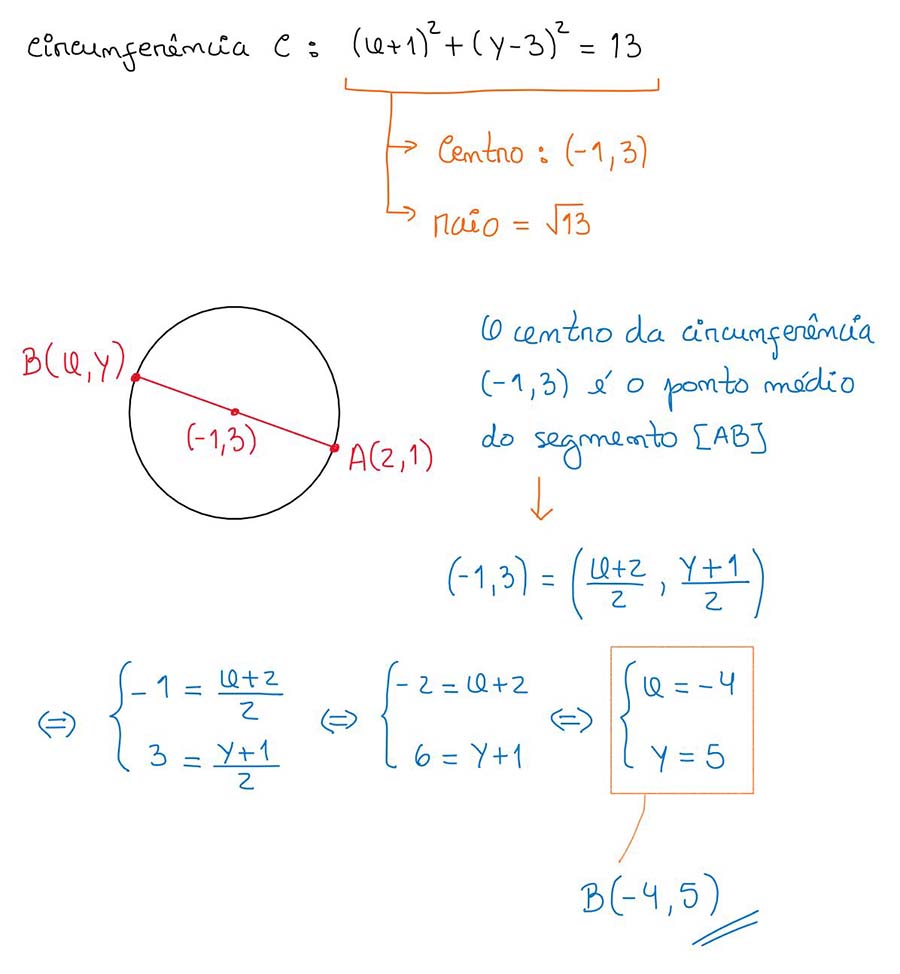 circunferência C : (x+1)² + (y-3)² = 13
Centro : (-1,3)
raio = √13
B(x,y)
(-1,3)
A(2,1)
O centro da circunferência
(-1,3) é o ponto médio
do segmento [AB]
(-1,3) = ( (x+2)/2 , (y+1)/2 )
⇔ { -1 = (x+2)/2 ⇔ { -2 = x+2 ⇔ { x = -4
3 = (y+1)/2 6 = y+1 y = 5
B(-4,5)